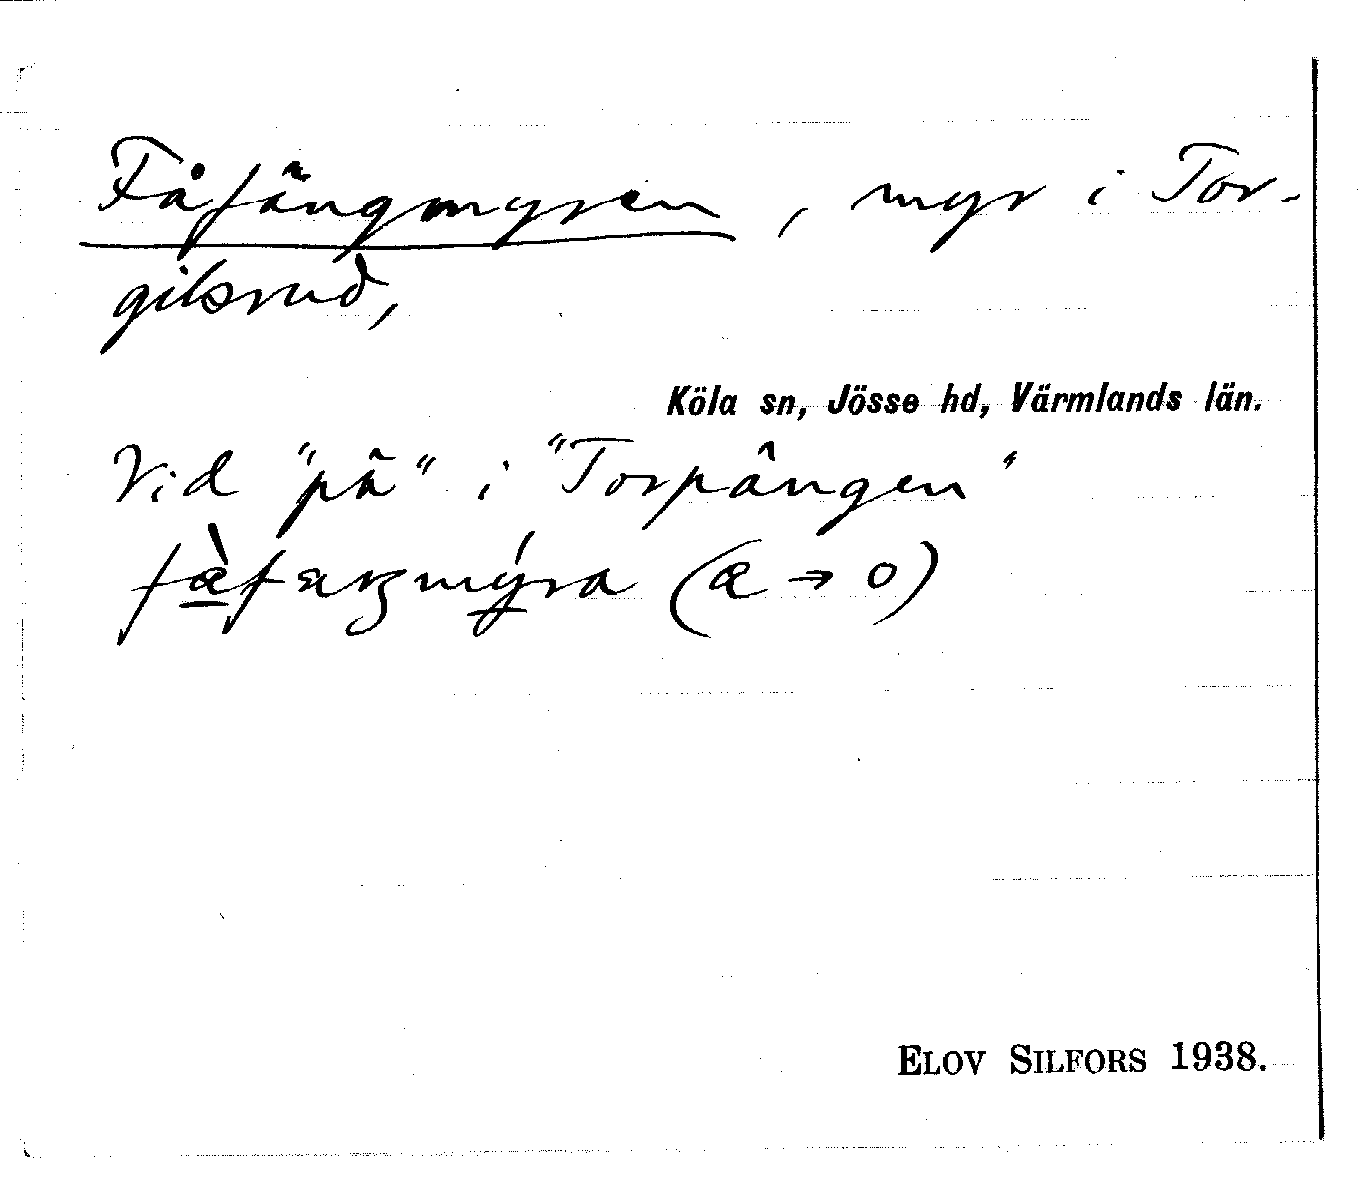 Fåfängmyren, myr i Tor-
gilsrud,
Köla sn, Jösse hd, Värmlands län.
Vid "på" i "Torpängen"
(æ → o)
ELOV SILFORS 1938.